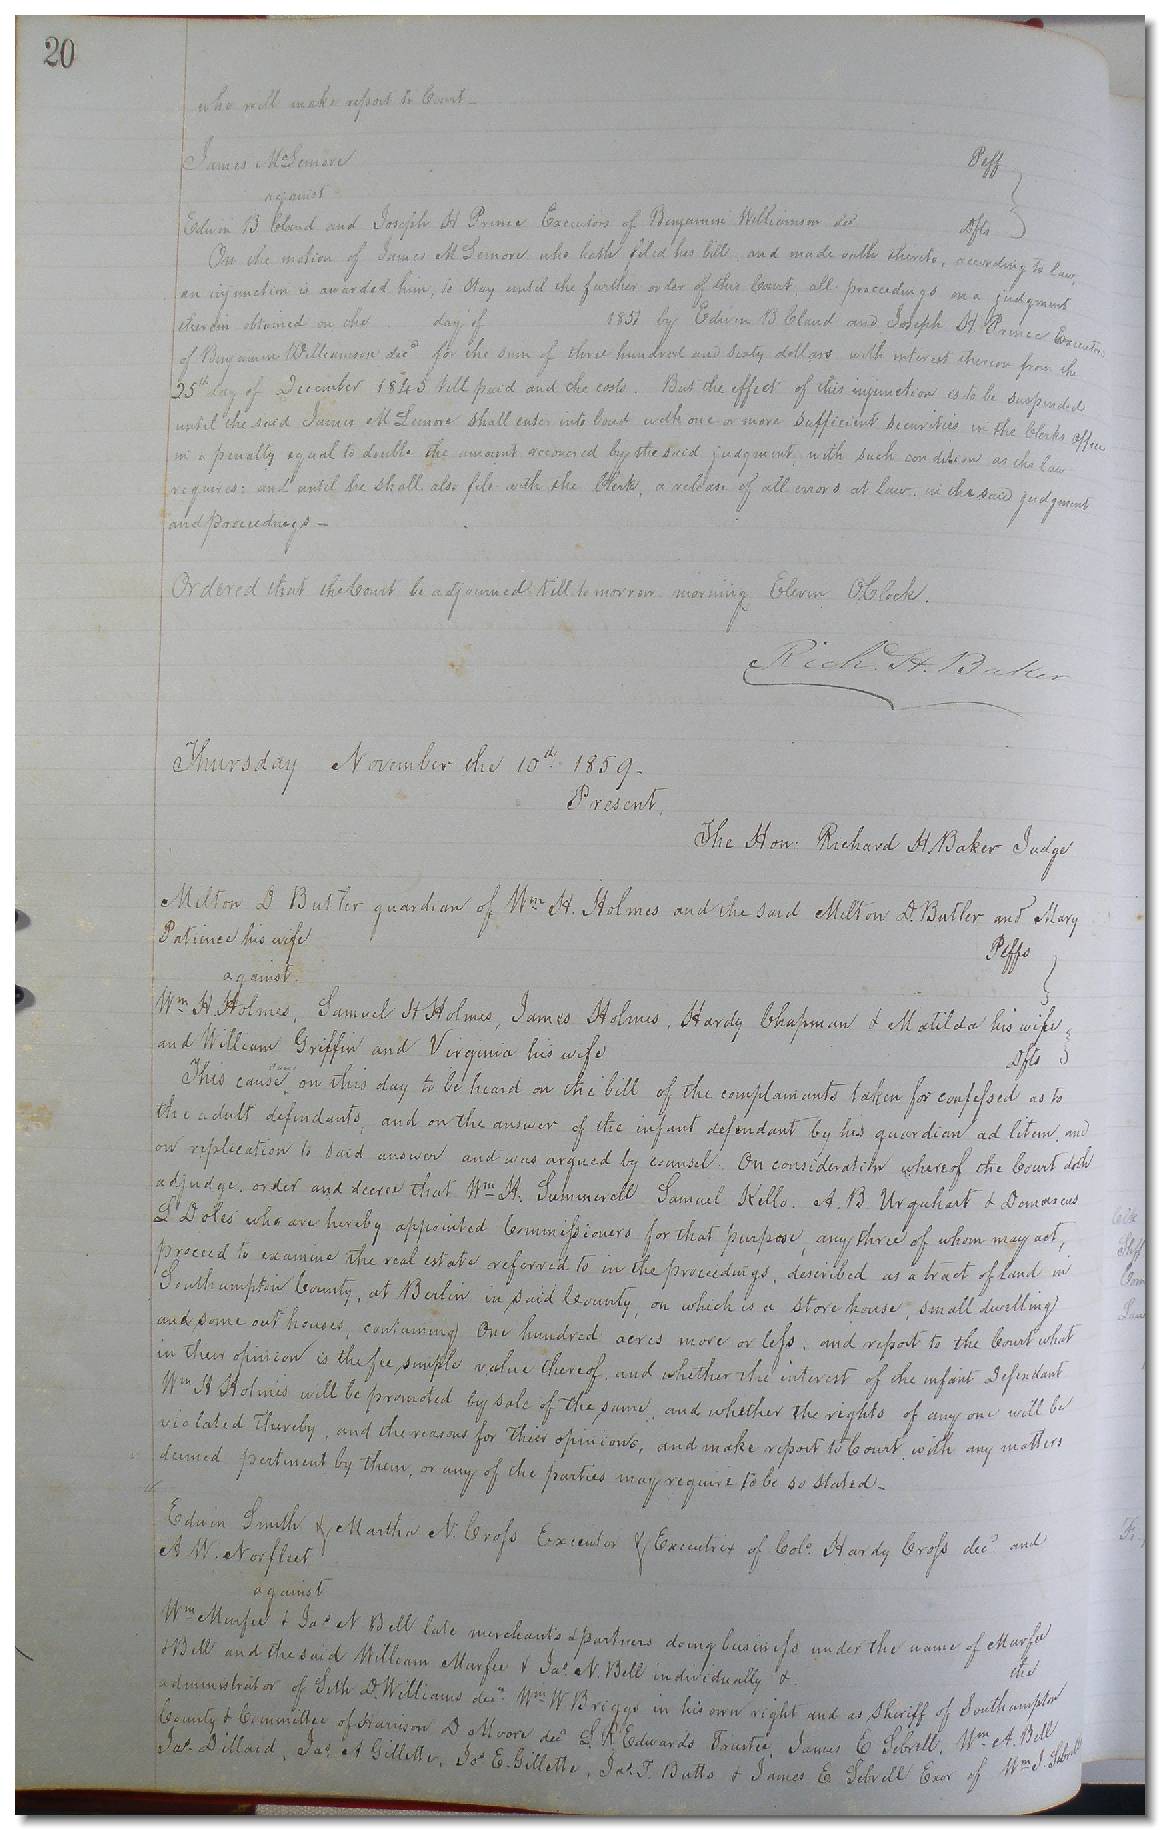 20
who will make report to Court –
James McLemore Peff
against
Edwin B Claud and Joseph H Prince Executors of Benjamin Williamson decd Dfts
On the motion of James McLemore who hath filed his bill, and made oath thereto, according to law,
an injunction is awarded him, to stay until the further order of this Court, all proceedings on a judgment
therein obtained on the day of 1851 by Edwin B Claud and Joseph H Prince Executors
of Benjamin Williamson decd for the sum of three hundred and sixty dollars with interest thereon from the
25th day of December 1845 till paid and the costs. But the effect of this injunction is to be suspended
until the said James McLemore shall enter into bond with one or more sufficient securities in the Clerks office
in a penalty equal to double the amount recovered by the said judgment, with such condition as the law
requires: and until he shall also file with the Clerk, a release of all errors at law in the said judgment
and proceedings –
Ordered that the Court be adjourned till tomorrow morning Eleven OClock.
Richd. H. Baker
Thursday November the 10th 1859 –
Present,
The Hon: Richard H Baker Judge
Milton D Butler guardian of Wm H. Holmes and the said Milton D. Butler and Mary
Patience his wife Peffs
against
Wm H. Holmes, Samuel H Holmes, James Holmes, Hardy Chapman & Matilda his wife
and William Griffin and Virginia his wife Dfts
This cause came on this day to be heard on the bill of the complainants taken for confessed as to
the adult defendants, and on the answer of the infant defendant by his guardian ad litem, and
on replication to said answer and was argued by counsel. On consideration whereof the Court doth
adjudge, order and decree that Wm H. Summerell Samuel Kello, A. B Urquhart & Domascus
L Doles who are hereby appointed Commissioners for that purpose, any three of whom may act,
proceed to examine the real estate referred to in the proceedings, described as a tract of land in
Southampton County, at Berlin in said County, on which is a store house, small dwelling
and some out houses, containing One hundred acres more or less, and report to the Court what
in their opinion is the fee simple value thereof, and whether the interest of the infant Defendant
Wm H Holmes will be promoted by sale of the same, and whether the rights of any one will be
violated thereby, and the reasons for their opinions, and make report to Court, with any matters
deemed pertinent by them, or any of the parties may require to be so stated –
Edwin Smith & Martha N. Cross Executor & Executrix of Colo. Hardy Cross decd and
A W. Norfleet
against
Wm Murfee & Jas N Bell late merchants & partners doing business under the name of Murfee
& Bell and the said William Murfee & Jas. N. Bell individually & the
administrator of Seth D. Williams decd. Wm W Briggs in his own right and as Sheriff of Southampton
County & Committee of Harrison D Moore decd L. R Edwards Trustee, James E Sebrell, Wm A. Bell
Jas. Dillard, Jas. A Gillette, Jos E. Gillette, Jas. T. Butts & James E Sebrell Exor of Wm J. Sebrell